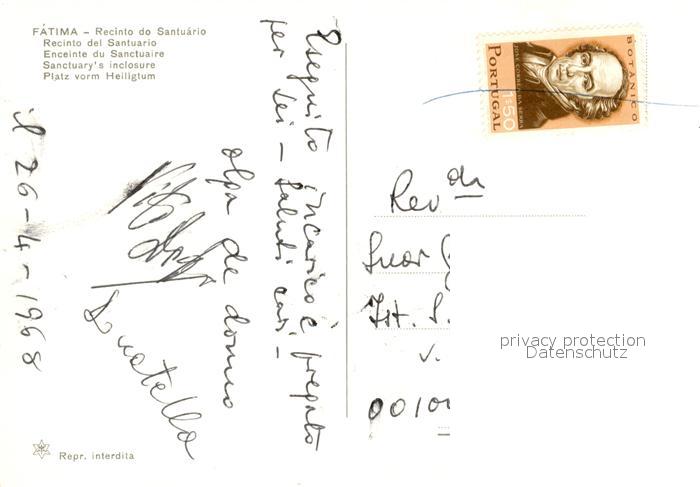 FÁTIMA – Recinto do Santuário
Recinto del Santuario
Enceinte du Sanctuaire
Sanctuary's inclosure
Platz vorm Heiligtum
il 26-4-1968
Eseguito incarico e pregato
per Lei – Saluti cari –
Olga De
Donatella
Repr. interdita
BOTÂNICO
JOSÉ CORREIA DA SERRA
1$50
PORTUGAL
Rev da
Suor
Ist. S.
V.
0010
privacy protection
Datenschutz